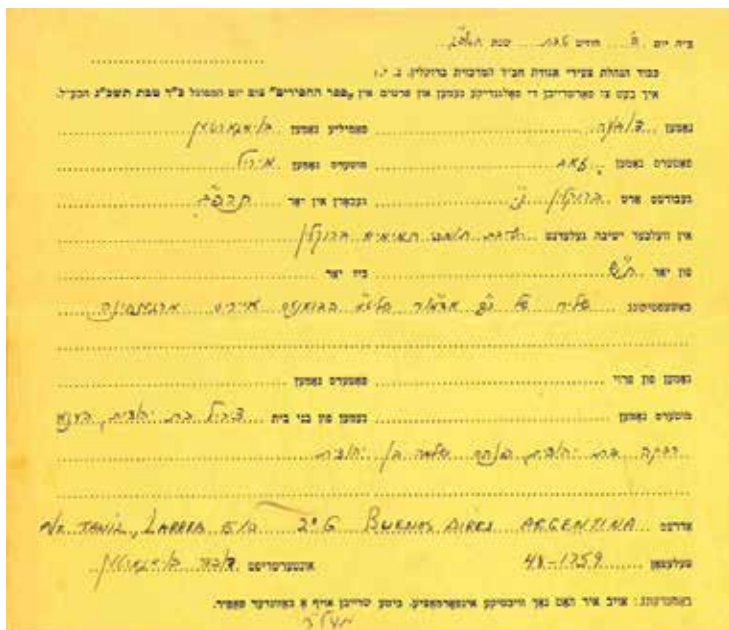 ב״ה יום ... חודש טבת שנת
כבוד הנהלת צעירי אגודת חב״ד המרכזית ברוקלין, נ. י.
איך בעט צו פארשרייבן די פאלגנדיקע נעמען און פרטים אין „ספר החסידים" צום יום המסוגל כ״ד טבת תשכ״ג הבע״ל.
נאמען פאמיליע נאמען
פאטערס נאמען זאב מוטערס נאמען
געבורטס ארט ברוקלין נ.י. געבארן אין יאר
אין וועלכער ישיבה געלערנט ישיבת תומכי תמימים ברוקלין
פון יאר ת״ש ביז יאר
באשעפטיקונג שליח של כ״ק אדמו״ר שליט״א בבואנוס איירעס ארגענטינה
נאמען פון פרוי פאטערס נאמען
מוטערס נאמען נעמען פון בני בית בת יהודית, חנה
רבקה בת יהודית מנחם שלמה בן יהודית
אדרעס LARREA 5/0 2º G BUENOS AIRES ARGENTINA
טעלעפאן 48-1759 אונטערשריפט
באמערקונג: אויב איר האט נאך וויכטיקע אינפארמאציע, ביטע שרייבן אויף א באזונדער פאפיר.